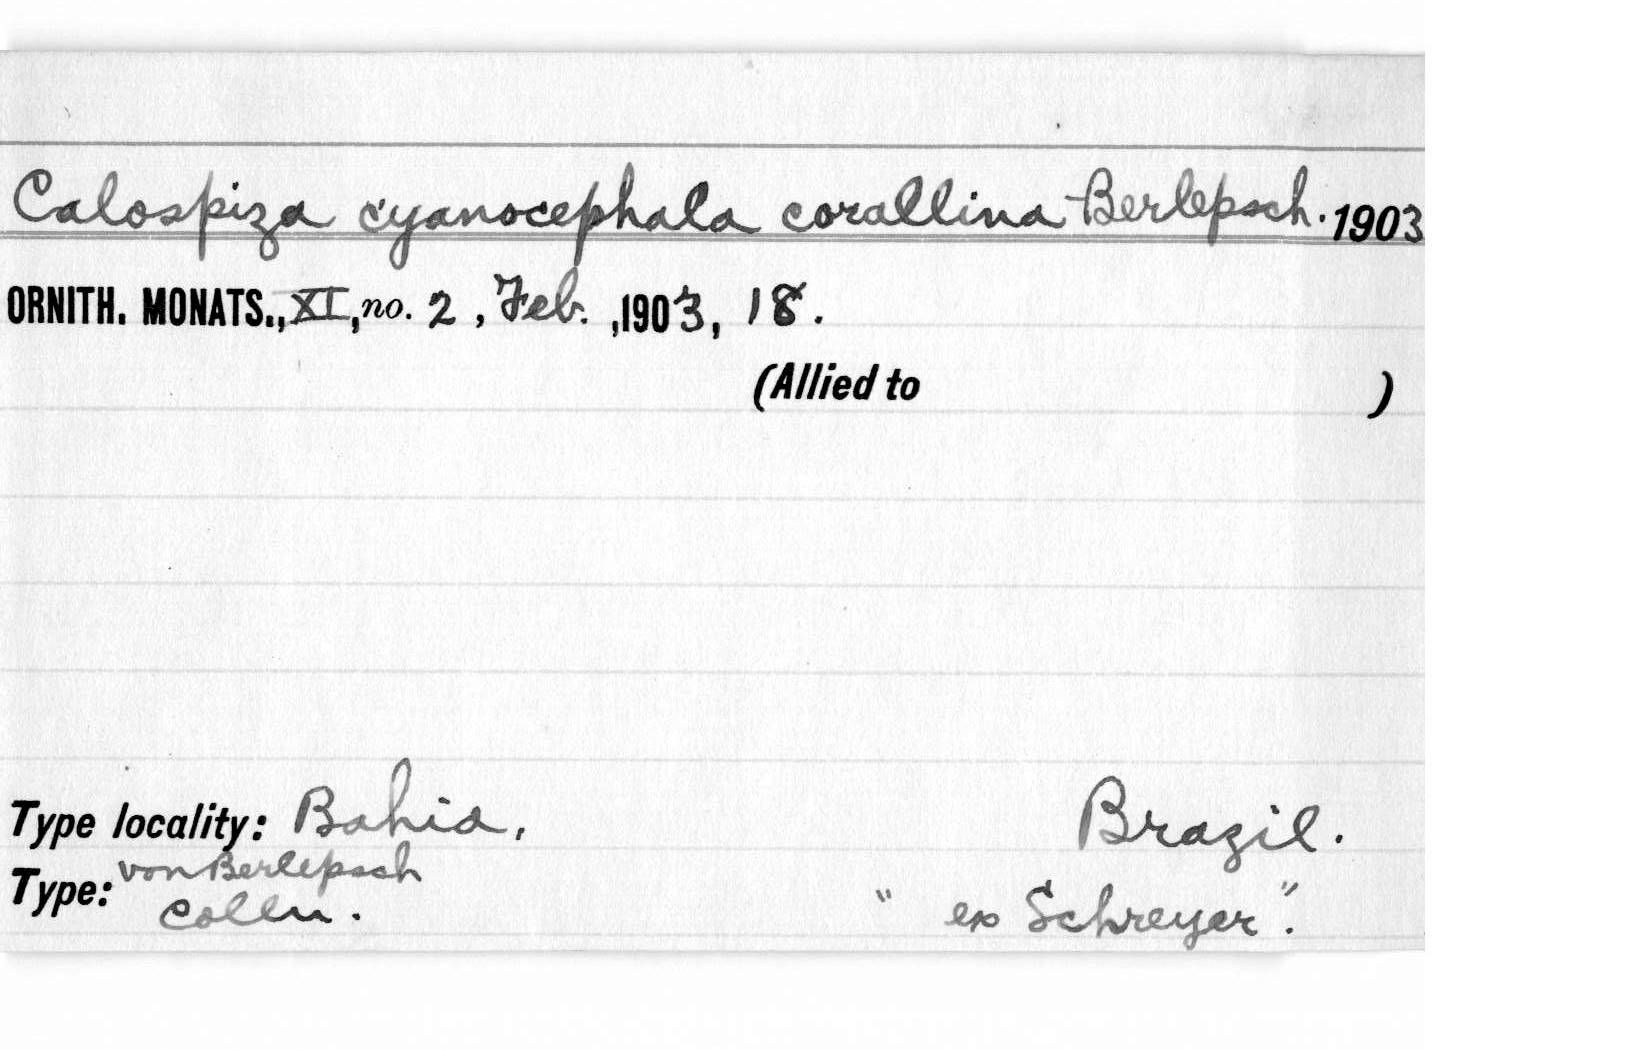 Calospiza cyanocephala corallina Berlepsch. 1903
ORNITH. MONATS., XI, no. 2, Feb., 1903, 18.
(Allied to )
Type locality: Bahia, Brazil.
Type: von Berlepsch
Colln. "ex Schreyer".